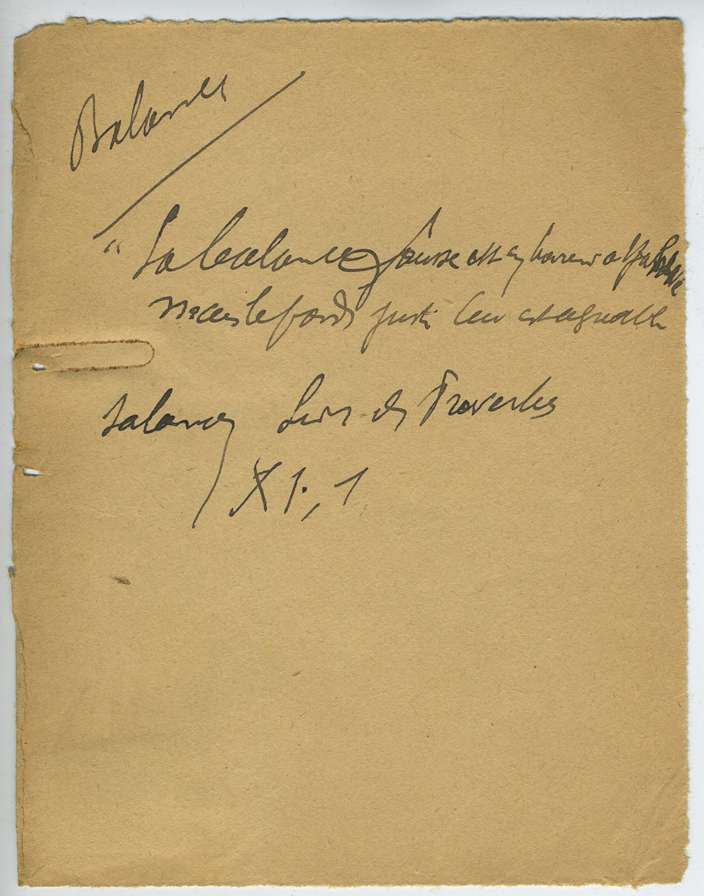 Balance
"La balance fausse est en horreur à
mais le poids juste lui est agréable
Salomon Livre des Proverbes
XI, 1